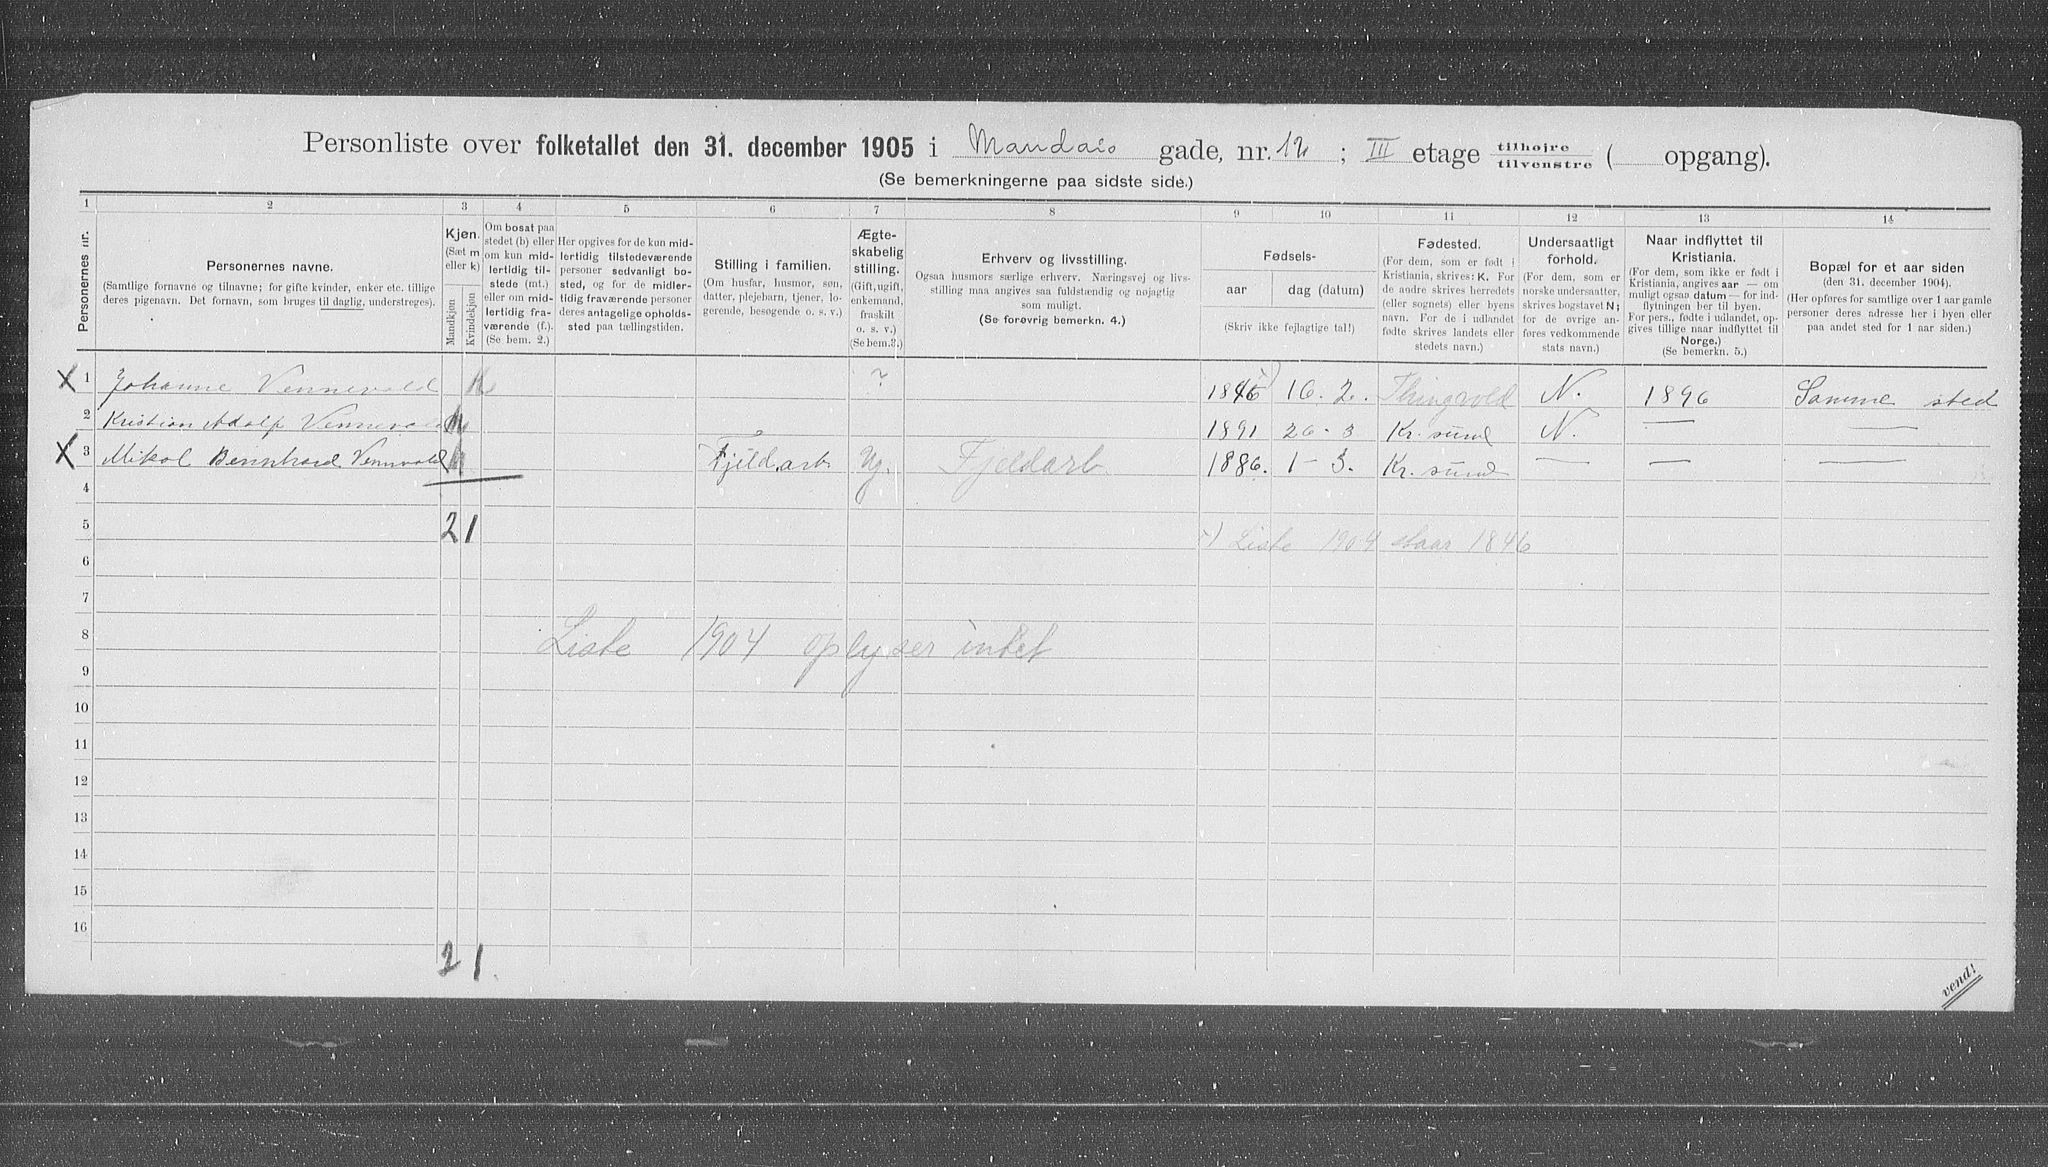 Personliste over folketallet den 31. december 1905 i Mandals gade, nr. 12 ; III etage tilhøjre tilvenstre ( opgang).
(Se bemerkningerne paa sidste side.)
1 2 3 4 5 6 7 8 9 10 11 12 13 14
Personernes nr.
Personernes navne.
(Samtlige fornavne og tilnavne; for gifte kvinder, enker etc. tillige
deres pigenavn. Det fornavn, som bruges til daglig, understreges).
Kjøn.
(Sæt m
eller k)
Mandkjøn
Kvindekjøn
Om bosat paa
stedet (b) eller
om kun mid-
lertidig til-
stede (mt.)
eller om mid-
lertidig fra-
værende (f.).
(Se bem. 2.)
Her opgives for de kun mid-
lertidig tilstedeværende
personer sedvanligt bo-
sted, og for de midler-
tidig fraværende personer
deres antagelige opholds-
sted paa tællingstiden.
Stilling i familien.
(Om husfar, husmor, søn,
datter, plejebarn, tjener, lo-
gerende, besøgende o. s. v.)
Ægte-
skabelig
stilling.
(Gift, ugift,
enkemand,
fraskilt
o. s. v.)
(Se bem. 3.)
Erhverv og livsstilling.
Ogsaa husmors særlige erhverv. Næringsvej og livs-
stilling maa angives saa fuldstændig og nøjagtig
som muligt.
(Se forøvrig bemerkn. 4.)
Fødsels-
aar
dag (datum)
(Skriv ikke fejlagtige tal!)
Fødested.
(For dem, som er født i
Kristiania, skrives: K. For
de andre skrives herredets
(eller sognets) eller byens
navn. For de i udlandet
fødte skrives landets eller
stedets navn.)
Undersaatligt
forhold.
(For dem, som er
norske undersaatter,
skrives bogstavet N;
for de øvrige an-
føres vedkommende
stats navn.)
Naar indflyttet til
Kristiania.
(For dem, som ikke er født i
Kristiania, angives aar — om
muligt ogsaa datum — for ind-
flytningen her til byen.
For pers., fødte i udlandet, op-
gives tillige naar indflyttet til
Norge.)
(Se bemerkn. 5.)
Bopæl for et aar siden
(den 31. december 1904).
(Her opføres for samtlige over 1 aar gamle
personer deres adresse her i byen eller
paa andet sted for 1 aar siden.)
X 1 Johanne Vennevold k ? 16. 2. Thingvold N. 1896 Samme sted
2 Kristian Adolf Vennevold m 1891 26 - 3 Kr. sund N. — —
X 3 Mikal Bernhard Vennevold m Fjeldarb Ug. Fjeldarb. 1886. 1 - 3. Kr. sund — — —
4
5 2 1 Liste 1904 staar 1846
6
7
8 Liste 1904 oplyser intet
9
10
11
12
13
14
15
16
2 1.
vend!